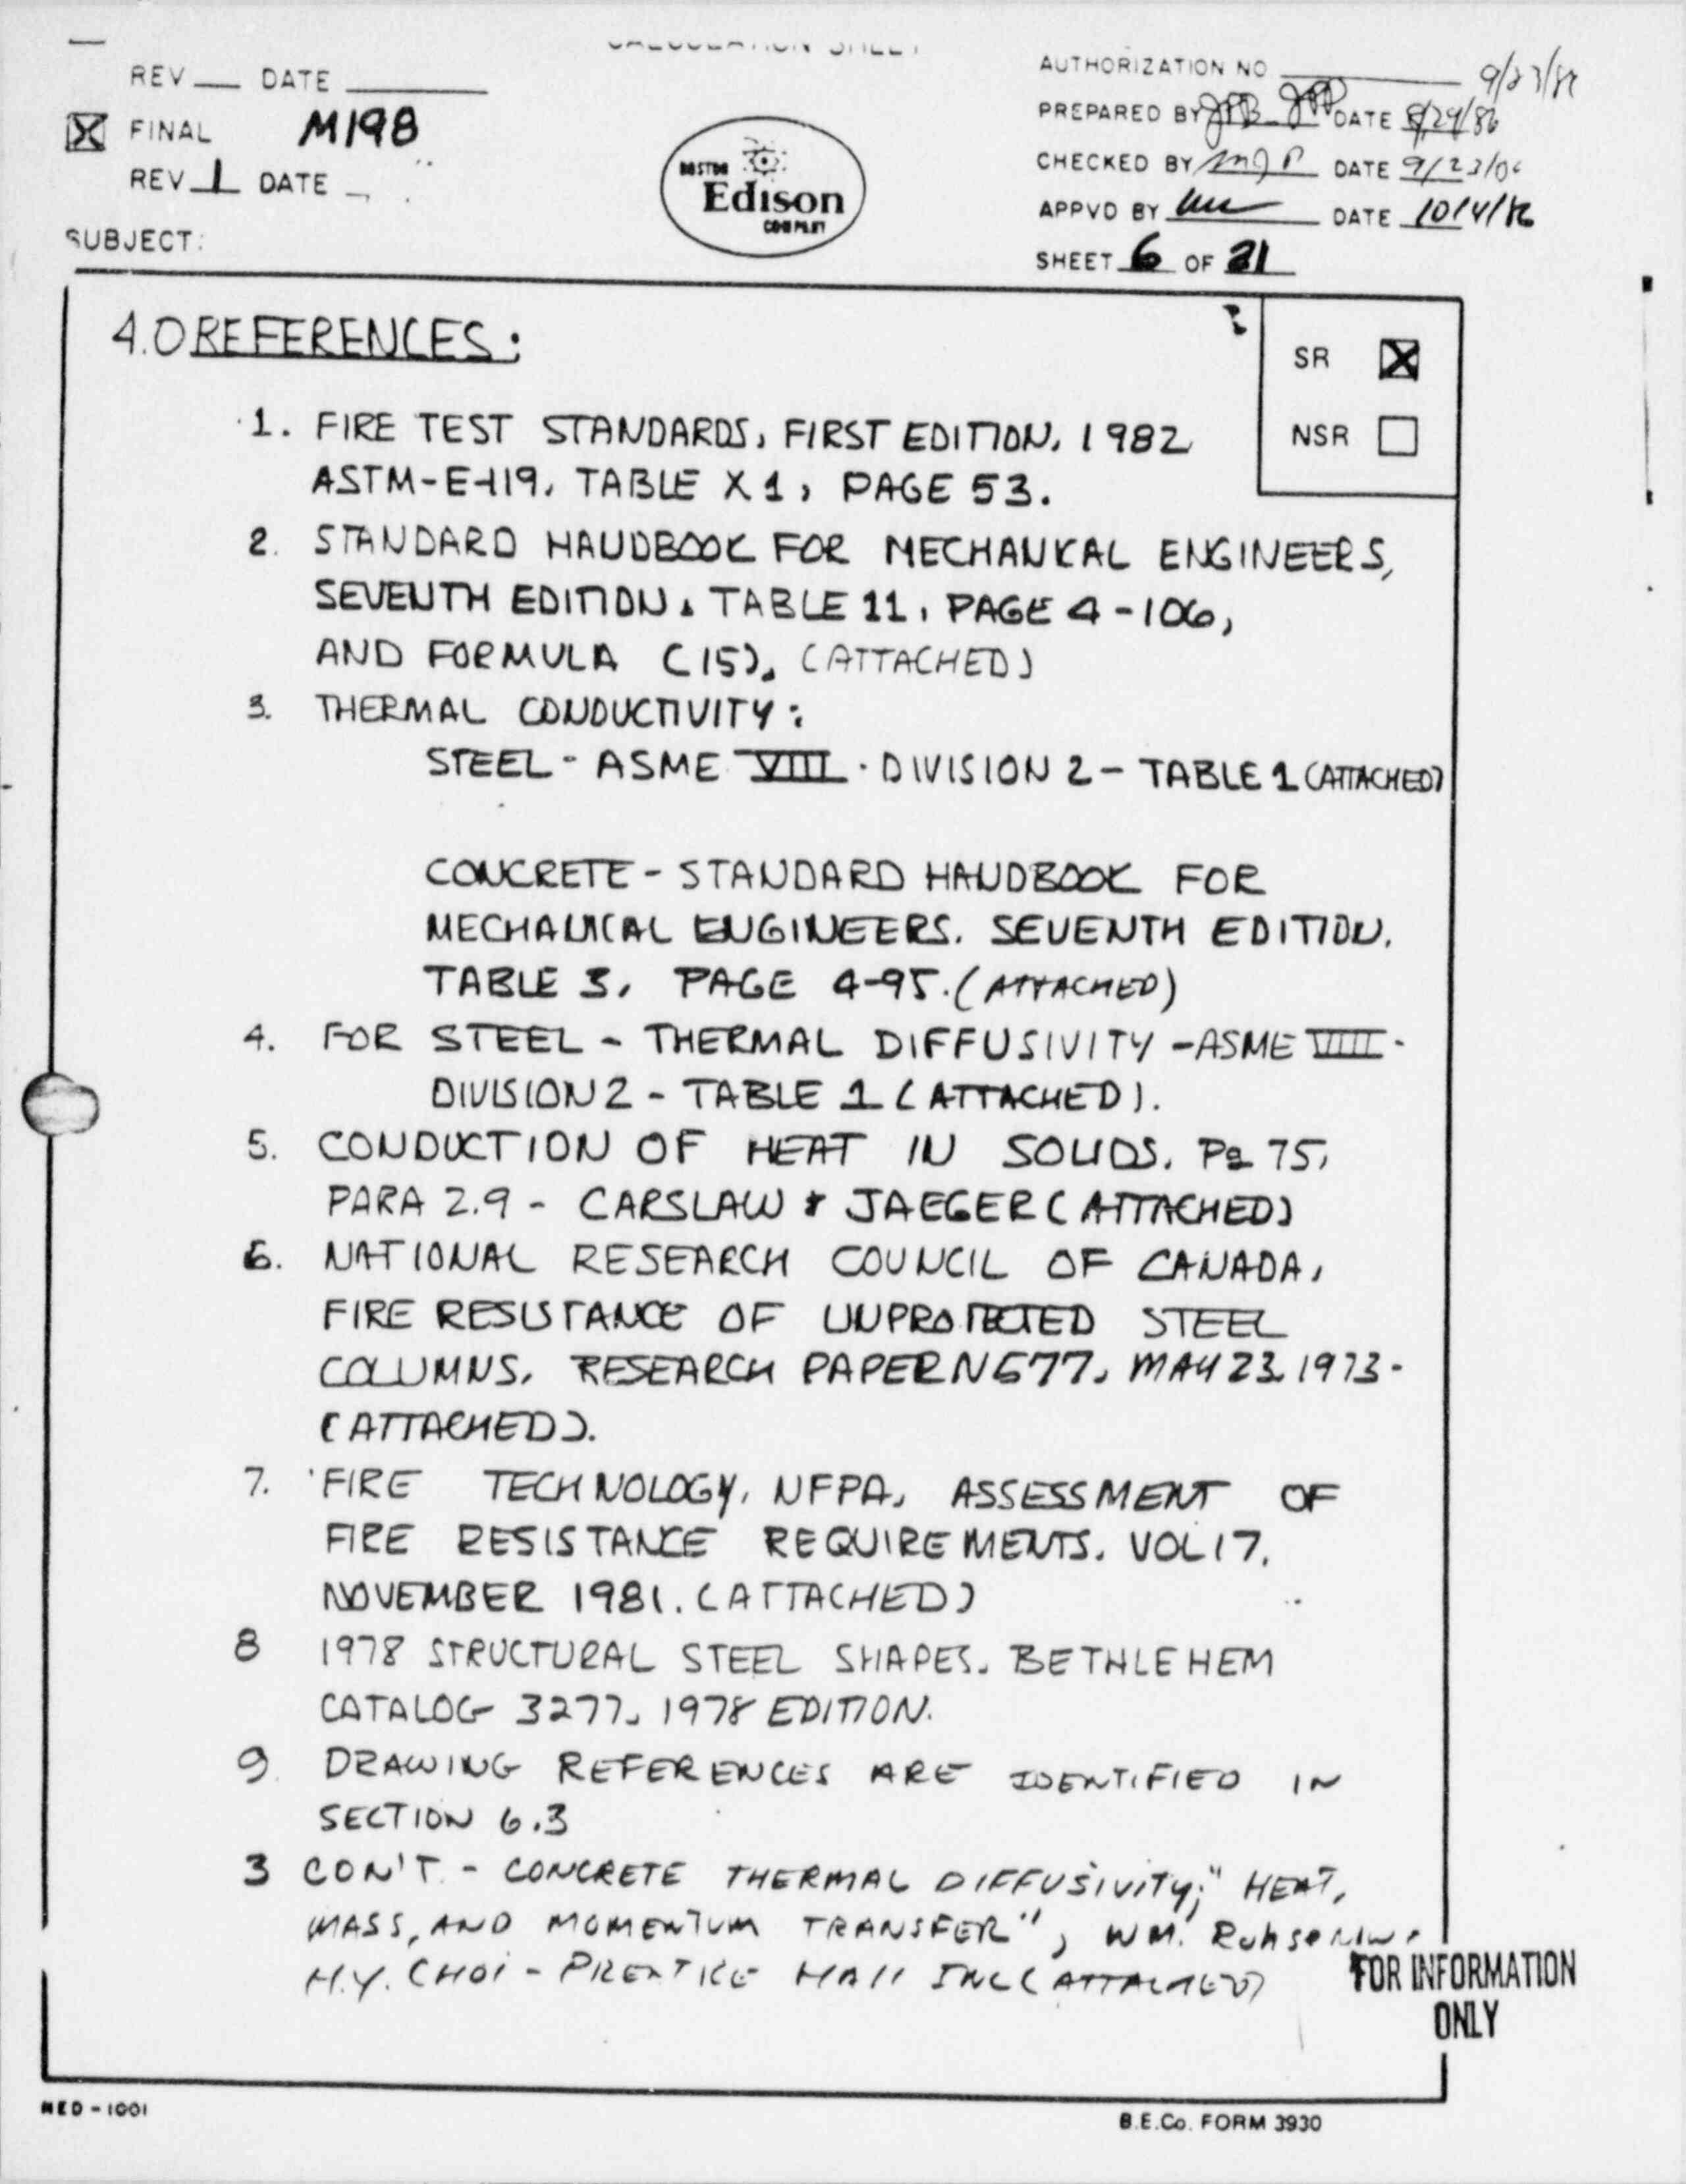 REV DATE
FINAL M198
REV 1 DATE
SUBJECT:
BOSTON
Edison
COMPANY
AUTHORIZATION NO
PREPARED BY DATE 8/29/86
CHECKED BY DATE
APPVD BY DATE 10/4/86
SHEET 6 OF 21
SR
NSR
4.0 REFERENCES:
1. FIRE TEST STANDARDS, FIRST EDITION, 1982
ASTM-E-119, TABLE X1, PAGE 53.
2. STANDARD HANDBOOK FOR MECHANICAL ENGINEERS,
SEVENTH EDITION, TABLE 11, PAGE 4-106,
AND FORMULA (15), (ATTACHED)
3. THERMAL CONDUCTIVITY:
STEEL - ASME VIII - DIVISION 2 - TABLE 1 (ATTACHED)
CONCRETE - STANDARD HANDBOOK FOR
MECHANICAL ENGINEERS. SEVENTH EDITION.
TABLE 3, PAGE 4-95. (ATTACHED)
4. FOR STEEL - THERMAL DIFFUSIVITY - ASME VIII -
DIVISION 2 - TABLE 1 (ATTACHED).
5. CONDUCTION OF HEAT IN SOLIDS. Pg 75,
PARA 2.9 - CARSLAW & JAEGER (ATTACHED)
6. NATIONAL RESEARCH COUNCIL OF CANADA,
FIRE RESISTANCE OF UNPROTECTED STEEL
COLUMNS, RESEARCH PAPER N577, MAY 23, 1973 -
(ATTACHED).
7. FIRE TECHNOLOGY, NFPA, ASSESSMENT OF
FIRE RESISTANCE REQUIREMENTS. VOL 17,
NOVEMBER 1981. (ATTACHED)
8 1978 STRUCTURAL STEEL SHAPES. BETHLEHEM
CATALOG 3277, 1978 EDITION.
9. DRAWING REFERENCES ARE IDENTIFIED IN
SECTION 6.3
3 CON'T. - CONCRETE THERMAL DIFFUSIVITY; "HEAT,
MASS, AND MOMENTUM TRANSFER", WM.
H.Y. CHOI - PRENTICE HALL INC (ATTACHED)
FOR INFORMATION
ONLY
NED - 1001
B.E.Co. FORM 3930